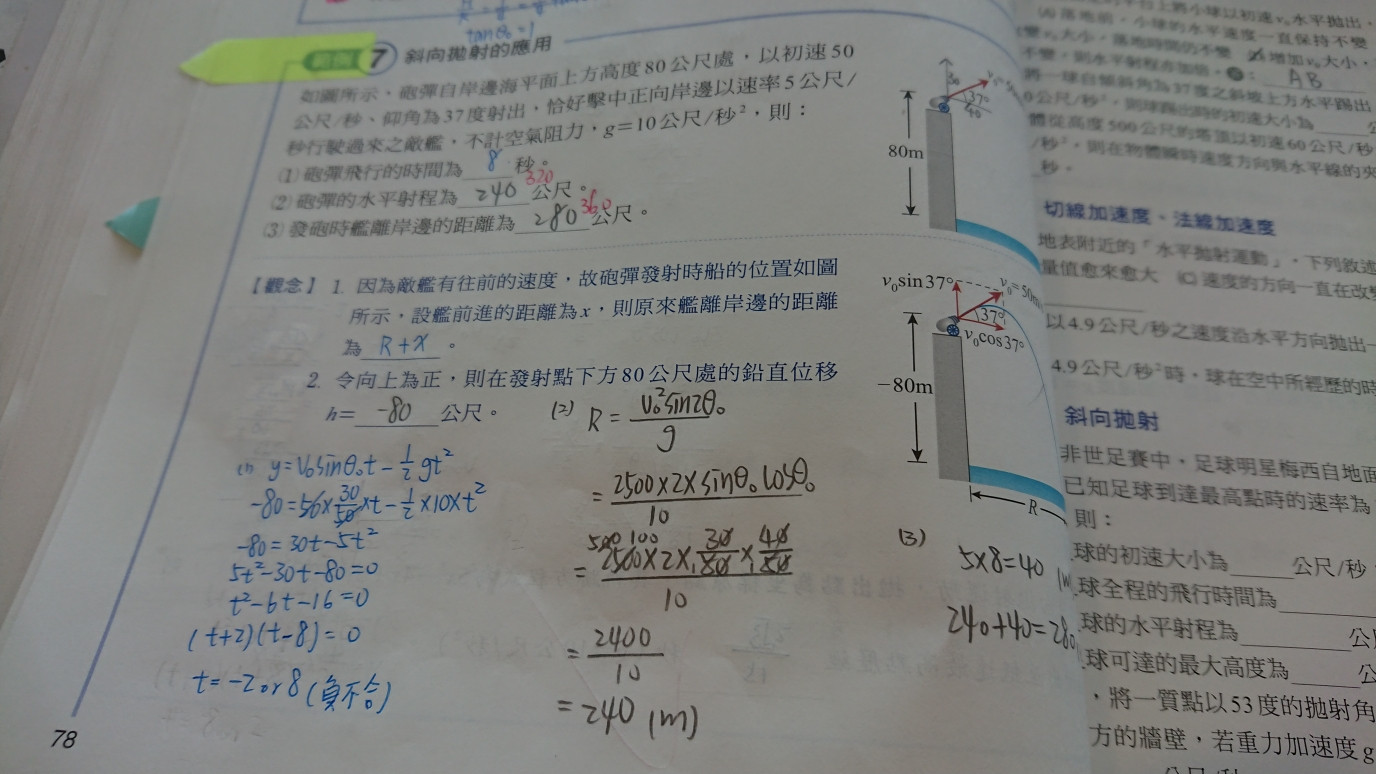 tanθ₀=1
範例 7 斜向拋射的應用
如圖所示、砲彈自岸邊海平面上方高度80公尺處，以初速50
公尺/秒、仰角為37度射出，恰好擊中正向岸邊以速率5公尺/
秒行駛過來之敵艦，不計空氣阻力，g=10公尺/秒²，則：
(1)砲彈飛行的時間為 8 秒。
(2)砲彈的水平射程為 240 320 公尺。
(3)發砲時艦離岸邊的距離為 280 360 公尺。
37°
40
80m
【觀念】1. 因為敵艦有往前的速度，故砲彈發射時船的位置如圖
所示，設艦前進的距離為x，則原來艦離岸邊的距離
為 R+x 。
2. 令向上為正，則在發射點下方80公尺處的鉛直位移
h= -80 公尺。
v₀sin37°
v₀=50m
37°
v₀cos37°
-80m
R
(1) y=V₀sinθ₀t-½gt²
-80=50×30/50×t-½×10×t²
-80=30t-5t²
5t²-30t-80=0
t²-6t-16=0
(t+2)(t-8)=0
t=-2 or 8 (負不合)
(2) R=V₀²sin2θ₀/g
=2500×2×sinθ₀cosθ₀/10
500 100
=2500×2×30/50×40/50/10
=2400/10
=240 (m)
(3)
5×8=40 (m
240+40=280
78
平台上將小球以初速v₀水平拋出，
落地前，小球的水平速度一直保持不變
大小，落地時間仍不變
增加v₀大小，
不變，則水平射程亦加倍。
AB
將一球自傾斜角為37度之斜坡上方水平踢出
0公尺/秒²，則球踢出時的初速大小為
體從高度500公尺的塔頂以初速60公尺/秒
/秒²，則在物體瞬時速度方向與水平線的夾
秒。
切線加速度、法線加速度
地表附近的「水平拋射運動」，下列敘述
量值愈來愈大 (C)速度的方向一直在改變
以4.9公尺/秒之速度沿水平方向拋出一
4.9公尺/秒²時，球在空中所經歷的時
斜向拋射
非世足賽中，足球明星梅西自地面
已知足球到達最高點時的速率為
則：
球的初速大小為 公尺/秒
球全程的飛行時間為
球的水平射程為 公
球可達的最大高度為 公
，將一質點以53度的拋射角
方的牆壁，若重力加速度g